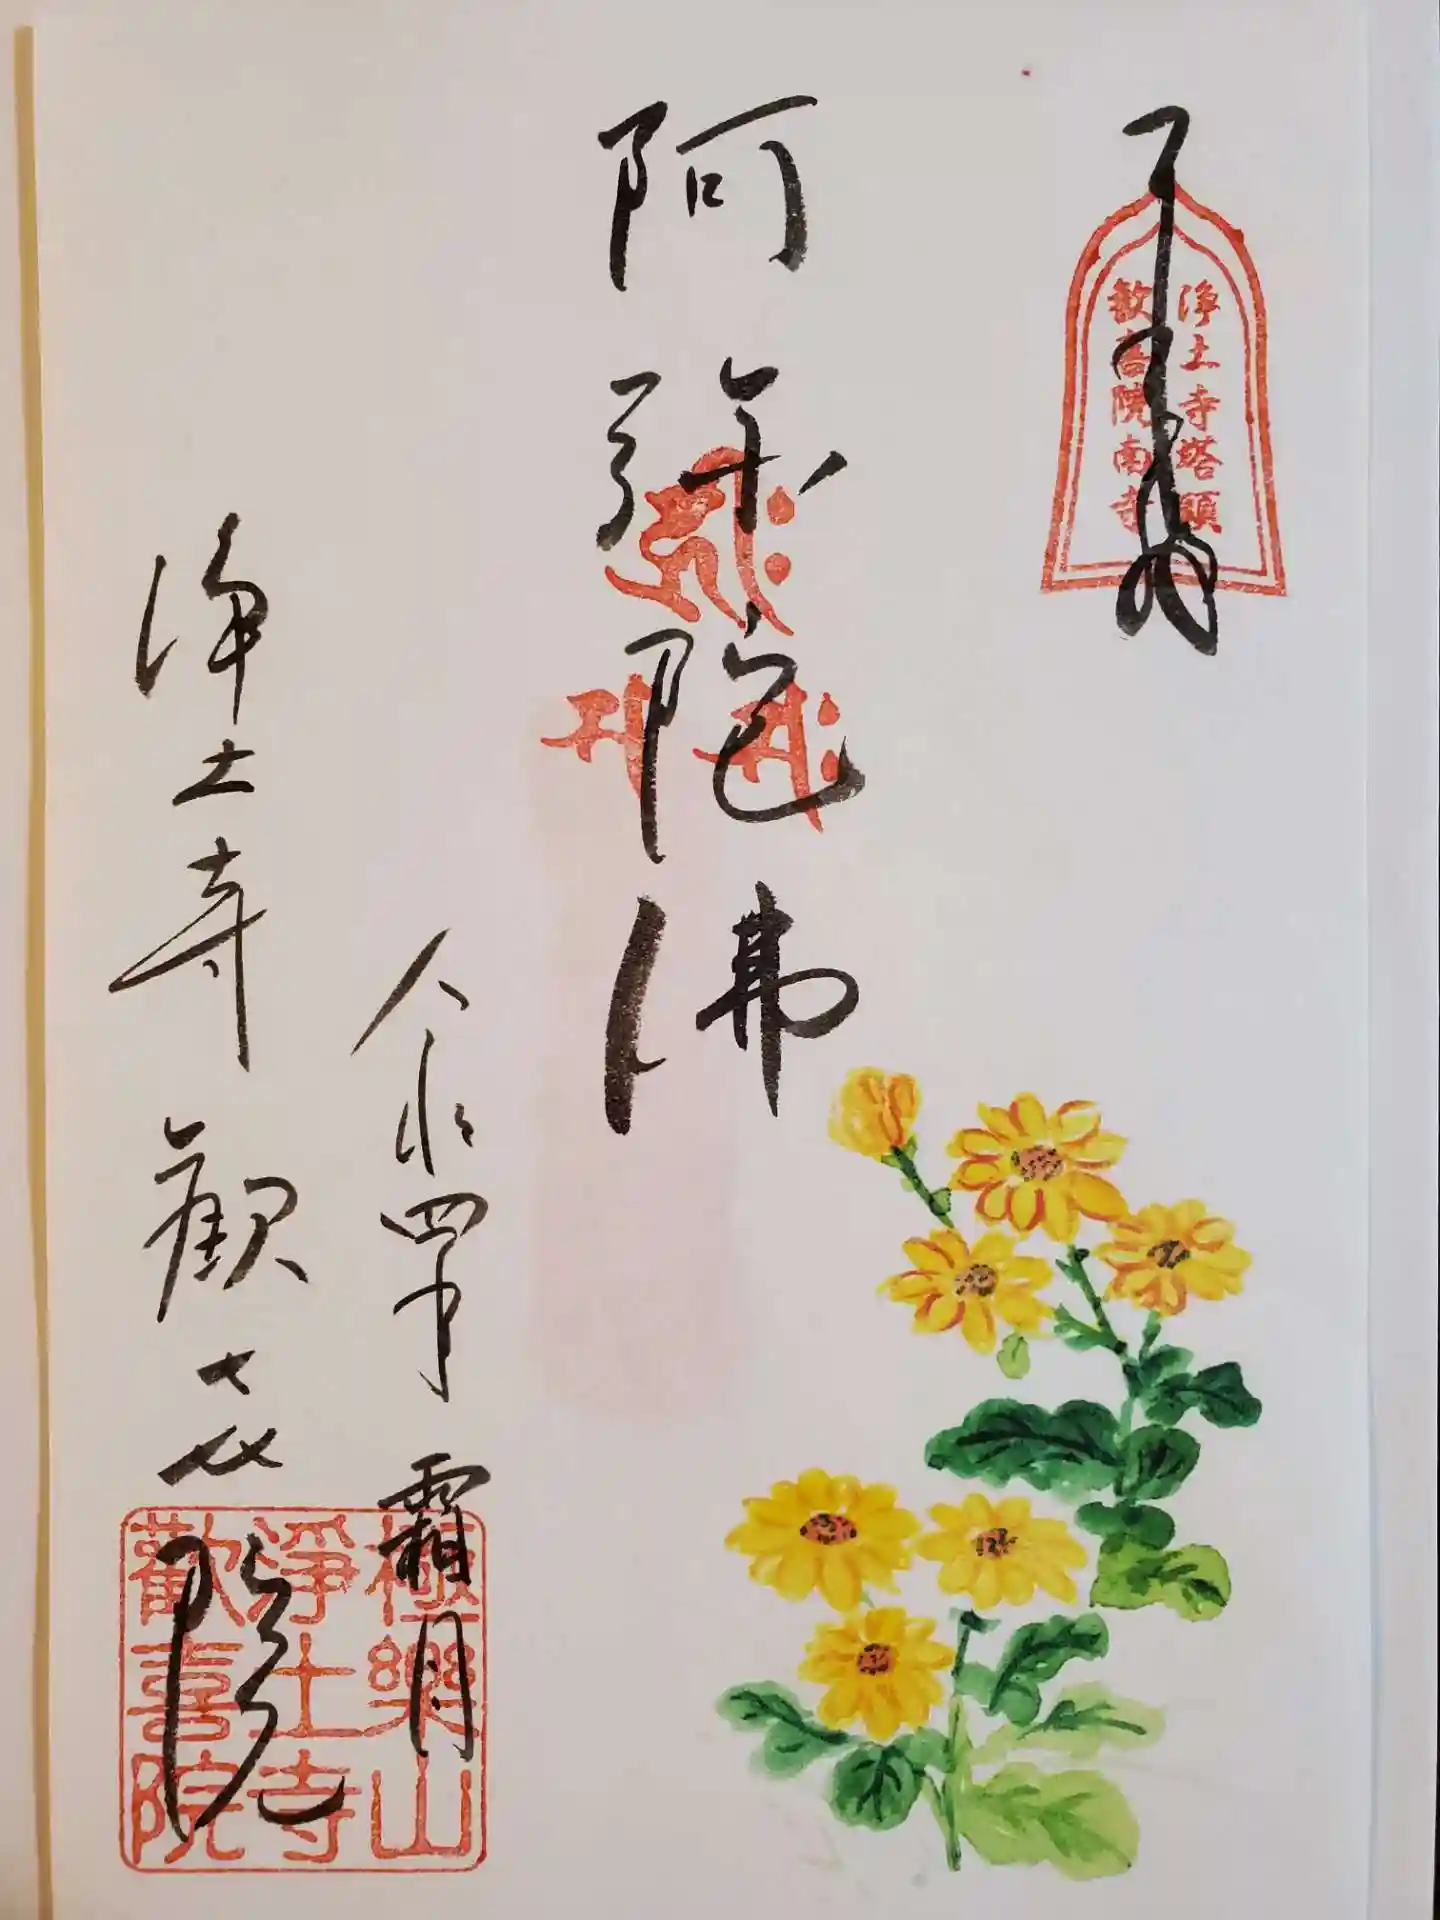 奉拝
浄土寺塔頭
歓喜院南寺
阿弥陀佛
令和四年 霜月
浄土寺 歓喜院
極樂山
淨土寺
歡喜院